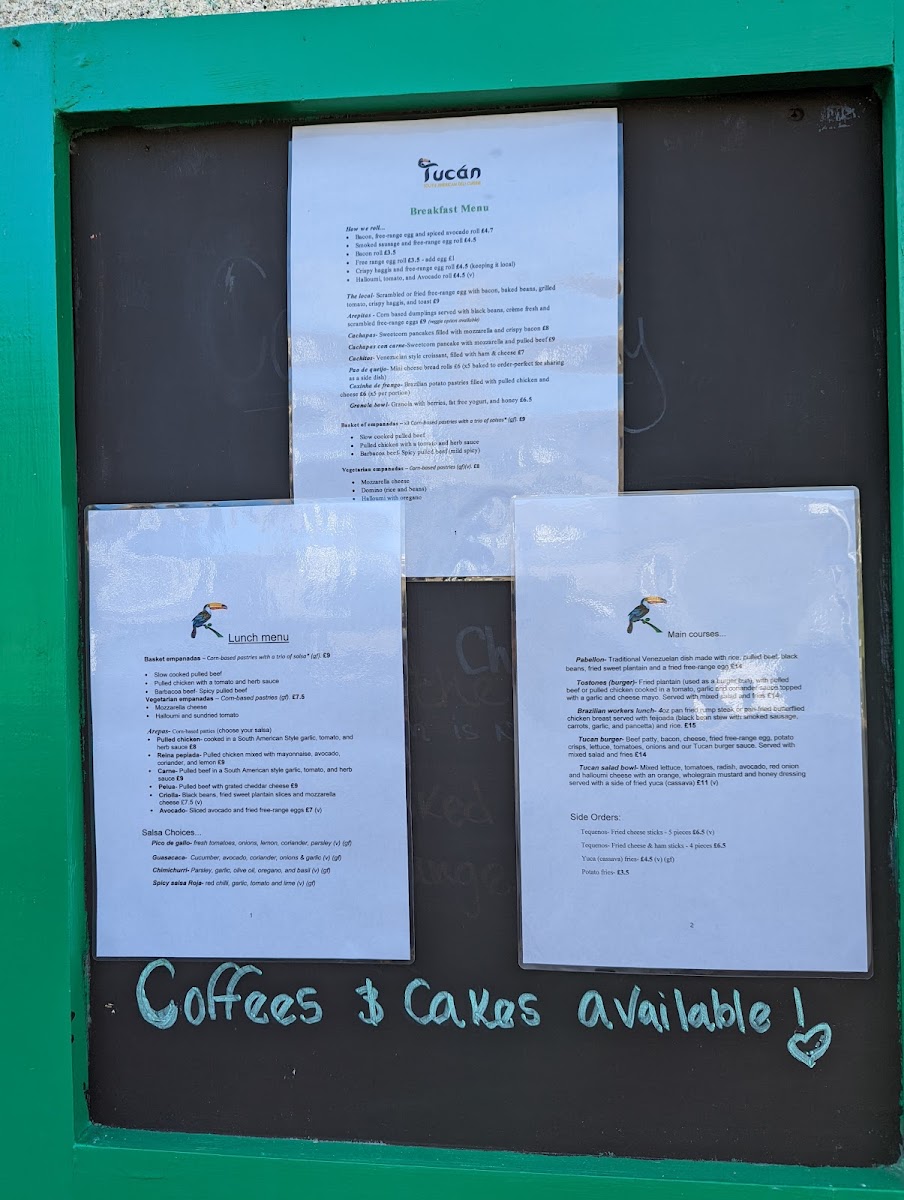 Tucán
Breakfast Menu
How we roll...
• Bacon, free-range egg and spiced avocado roll £4.7
• Smoked sausage and free-range egg roll £4.5
• Bacon roll £3.5
• Free range egg roll £3.5 - add egg £1
• Crispy haggis and free-range egg roll £4.5 (keeping it local)
• Halloumi, tomato, and Avocado roll £4.5 (v)
The local- Scrambled or fried free-range egg with bacon, baked beans, grilled
tomato, crispy haggis, and toast £9
Arepitas - Corn based dumplings served with black beans, crème fresh and
scrambled free-range eggs £9 (veggie option available)
Cachapas- Sweetcorn pancakes filled with mozzarella and crispy bacon £8
Cachapas con carne-Sweetcorn pancake with mozzarella and pulled beef £9
Cachitos- Venezuelan style croissant, filled with ham & cheese £7
Pao de queijo- Mini cheese bread rolls £6 (x5 baked to order-perfect for sharing
as a side dish)
Coxinha de frango- Brazilian potato pastries filled with pulled chicken and
cheese £6 (x5 per portion)
Granola bowl- Granola with berries, fat free yogurt, and honey £6.5
Basket of empanadas – x3 Corn-based pastries with a trio of salsas* (gf). £9
• Slow cooked pulled beef
• Pulled chicken with a tomato and herb sauce
• Barbacoa beef- Spicy pulled beef (mild spicy)
Vegetarian empanadas – Corn-based pastries (gf)(v). £8
• Mozzarella cheese
• Domino (rice and beans)
• Halloumi with oregano
1
Lunch menu
Basket empanadas – Corn-based pastries with a trio of salsa* (gf). £9
• Slow cooked pulled beef
• Pulled chicken with a tomato and herb sauce
• Barbacoa beef- Spicy pulled beef
Vegetarian empanadas – Corn-based pastries (gf). £7.5
• Mozzarella cheese
• Halloumi and sundried tomato
Arepas- Corn-based patties (choose your salsa)
• Pulled chicken- cooked in a South American Style garlic, tomato, and
herb sauce £8
• Reina pepiada- Pulled chicken mixed with mayonnaise, avocado,
coriander, and lemon £9
• Carne- Pulled beef in a South American style garlic, tomato, and herb
sauce £9
• Pelua- Pulled beef with grated cheddar cheese £9
• Criolla- Black beans, fried sweet plantain slices and mozzarella
cheese £7.5 (v)
• Avocado- Sliced avocado and fried free-range eggs £7 (v)
Salsa Choices...
Pico de gallo- fresh tomatoes, onions, lemon, coriander, parsley (v) (gf)
Guasacaca- Cucumber, avocado, coriander, onions & garlic (v) (gf)
Chimichurri- Parsley, garlic, olive oil, oregano, and basil (v) (gf)
Spicy salsa Roja- red chilli, garlic, tomato and lime (v) (gf)
1
Main courses...
Pabellon- Traditional Venezuelan dish made with rice, pulled beef, black
beans, fried sweet plantain and a fried free-range egg £14
Tostones (burger)- Fried plantain (used as a burger bun), with pulled
beef or pulled chicken cooked in a tomato, garlic and coriander sauce topped
with a garlic and cheese mayo. Served with mixed salad and fries £14
Brazilian workers lunch- 4oz pan fried rump steak or pan-fried butterflied
chicken breast served with feijoada (black bean stew with smoked sausage,
carrots, garlic, and pancetta) and rice. £15
Tucan burger- Beef patty, bacon, cheese, fried free-range egg, potato
crisps, lettuce, tomatoes, onions and our Tucan burger sauce. Served with
mixed salad and fries £14
Tucan salad bowl- Mixed lettuce, tomatoes, radish, avocado, red onion
and halloumi cheese with an orange, wholegrain mustard and honey dressing
served with a side of fried yuca (cassava) £11 (v)
Side Orders:
Tequenos- Fried cheese sticks - 5 pieces £6.5 (v)
Tequenos- Fried cheese & ham sticks - 4 pieces £6.5
Yuca (cassava) fries- £4.5 (v) (gf)
Potato fries- £3.5
2
Coffees & Cakes available!